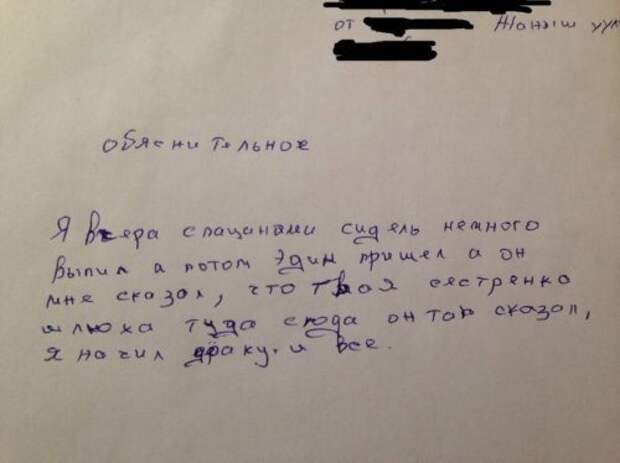 от Жаныш уулу
обяснительное
Я вчера спацанами сидель немного
выпил а потом Эдин пришел а он
мне сказал, что твоя сястренка
шлюха туда сюда он так сказал,
я начил драку. и все.